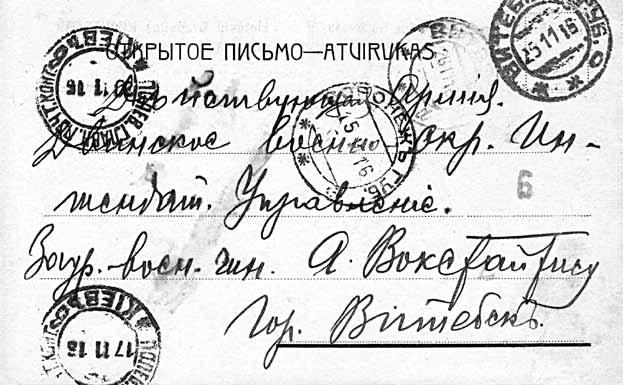 ОТКРЫТОЕ ПИСЬМО—ATVIRUKAS
Дѣйствующая Армія.
Двинское военно-окр. Ин-
тендат. Управленіе.
6
Заур.-воен.-чин. А. Вокстайтису
Гор. Витебскъ.
КІЕВЪ
25 11 16
ВИТЕБ
ГУБ.
КІЕВЪ
17 11 16